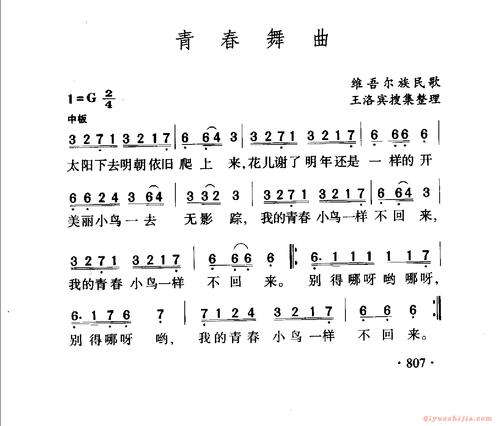 青春舞曲
维吾尔族民歌
1=G 2/4
王洛宾搜集整理
中板
3271 3217 6 64 3 3271 3217 6 64 3
太阳下去明朝依旧爬上来,花儿谢了明年还是一样的开
6624 3343 3 32 3 3271 3217 6 64 3
美丽小鸟一去无影踪,我的青春小鸟一样不回来,
3271 3217 6 66 6 6· 111 1217
我的青春小鸟一样不回来。别得哪呀哟哪呀,
6· 176 7 7 3271 3217 6 66 6
别得哪呀哟,我的青春小鸟一样不回来。
·807·
Qiyueshijia.com